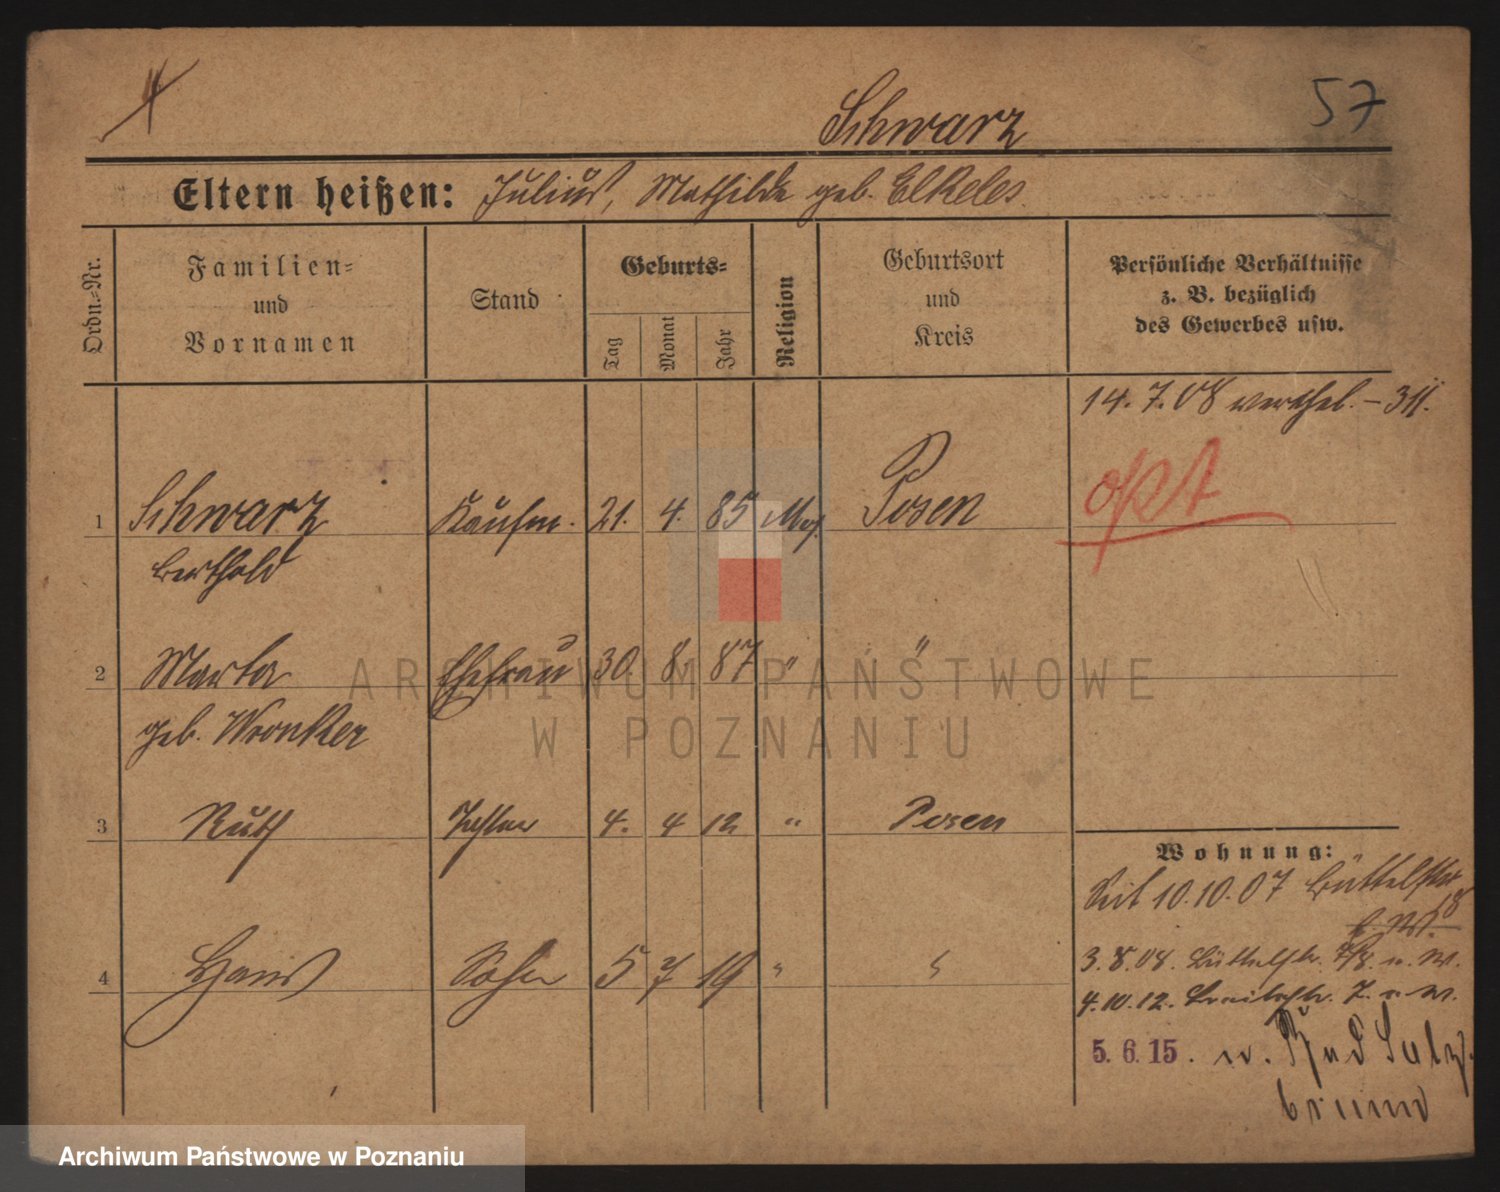 Schwarz
57
Eltern heißen: Julius, Mathilde geb. Elkeles.
Ordn.-Nr.
Familien- und Vornamen
Stand
Geburts-
Tag
Monat
Jahr
Religion
Geburtsort und Kreis
Persönliche Verhältnisse
z. B. bezüglich
des Gewerbes usw.
14. 7. 08 verehel.
1 Schwarz Kaufm. 21. 4. 85 Mos. Posen
Berthold
2 Marta Ehefrau 30. 8. 87 " "
geb. Wronker
3 Ruth Tochter 4. 4 12 " Posen
4 Hans Sohn 5 7 19 " "
Wohnung:
Seit 10.10.07 Büttelstr
18
3.8.08. Büttelstr. 7/8. n. W.
4.10.12. Breitestr. 7. n. W.
5. 6. 15. n. Bad Salz-
brunn
ARCHIWUM PAŃSTWOWE
W POZNANIU
Archiwum Państwowe w Poznaniu